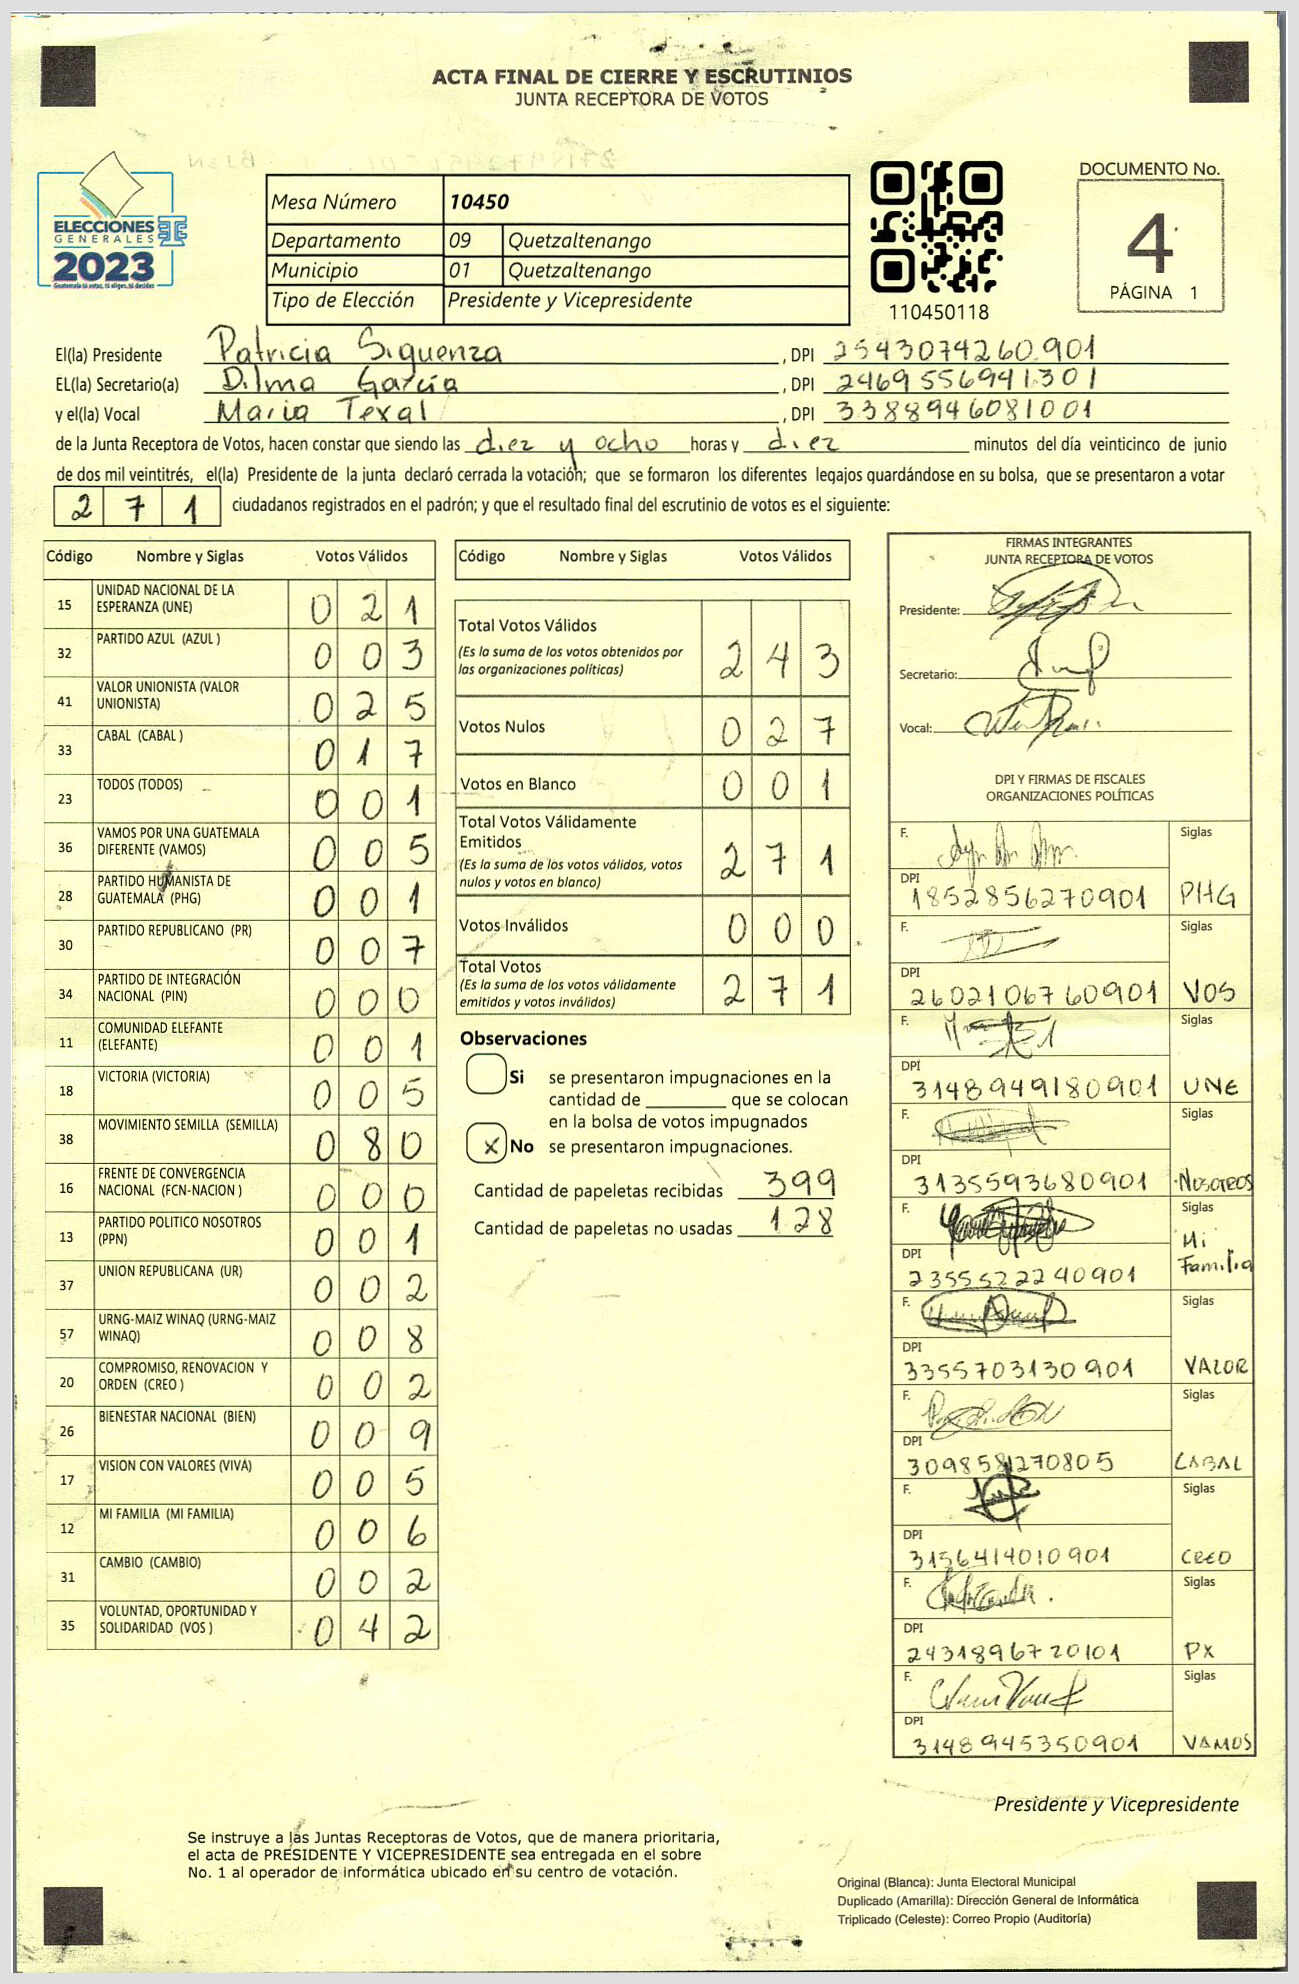 ACTA FINAL DE CIERRE Y ESCRUTINIOS
JUNTA RECEPTORA DE VOTOS
ELECCIONES
GENERALES
2023
Guatemala tú votas, tú eliges, tú decides
Mesa Número 10450
Departamento 09 Quetzaltenango
Municipio 01 Quetzaltenango
Tipo de Elección Presidente y Vicepresidente
110450118
DOCUMENTO No.
4
PÁGINA 1
El(la) Presidente Patricia Siguenza , DPI 2543074260901
EL(la) Secretario(a) Dilma García , DPI 2469556941301
y el(la) Vocal Maria Texal , DPI 3388946081001
de la Junta Receptora de Votos, hacen constar que siendo las diez y ocho horas y diez minutos del día veinticinco de junio
de dos mil veintitrés, el(la) Presidente de la junta declaró cerrada la votación; que se formaron los diferentes legajos guardándose en su bolsa, que se presentaron a votar
271 ciudadanos registrados en el padrón; y que el resultado final del escrutinio de votos es el siguiente:
Código Nombre y Siglas Votos Válidos
15 UNIDAD NACIONAL DE LA ESPERANZA (UNE) 021
32 PARTIDO AZUL (AZUL ) 003
41 VALOR UNIONISTA (VALOR UNIONISTA) 025
33 CABAL (CABAL ) 017
23 TODOS (TODOS) 001
36 VAMOS POR UNA GUATEMALA DIFERENTE (VAMOS) 005
28 PARTIDO HUMANISTA DE GUATEMALA (PHG) 001
30 PARTIDO REPUBLICANO (PR) 007
34 PARTIDO DE INTEGRACIÓN NACIONAL (PIN) 000
11 COMUNIDAD ELEFANTE (ELEFANTE) 001
18 VICTORIA (VICTORIA) 005
38 MOVIMIENTO SEMILLA (SEMILLA) 080
16 FRENTE DE CONVERGENCIA NACIONAL (FCN-NACION ) 000
13 PARTIDO POLITICO NOSOTROS (PPN) 001
37 UNION REPUBLICANA (UR) 002
57 URNG-MAIZ WINAQ (URNG-MAIZ WINAQ) 008
20 COMPROMISO, RENOVACION Y ORDEN (CREO ) 002
26 BIENESTAR NACIONAL (BIEN) 009
17 VISION CON VALORES (VIVA) 005
12 MI FAMILIA (MI FAMILIA) 006
31 CAMBIO (CAMBIO) 002
35 VOLUNTAD, OPORTUNIDAD Y SOLIDARIDAD (VOS ) 042
Código Nombre y Siglas Votos Válidos
Total Votos Válidos 243
(Es la suma de los votos obtenidos por
las organizaciones políticas)
Votos Nulos 027
Votos en Blanco 001
Total Votos Válidamente
Emitidos 271
(Es la suma de los votos válidos, votos
nulos y votos en blanco)
Votos Inválidos 000
Total Votos 271
(Es la suma de los votos válidamente
emitidos y votos inválidos)
Observaciones
Si se presentaron impugnaciones en la
cantidad de ________ que se colocan
en la bolsa de votos impugnados
X No se presentaron impugnaciones.
Cantidad de papeletas recibidas 399
Cantidad de papeletas no usadas 128
FIRMAS INTEGRANTES
JUNTA RECEPTORA DE VOTOS
Presidente:
Secretario:
Vocal:
DPI Y FIRMAS DE FISCALES
ORGANIZACIONES POLÍTICAS
F. Siglas
DPI 1852856270901 PHG
F. Siglas
DPI 2602106760901 VOS
F. Siglas
DPI 3148949180901 UNE
F. Siglas
DPI 3135593680901 Nosotros
F. Siglas
DPI 2355522240901 Mi Familia
F. Siglas
DPI 3355703130901 VALOR
F. Siglas
DPI 3098581270805 CABAL
F. Siglas
DPI 3156414010901 CREO
F. Siglas
DPI 2431896720101 PX
F. Siglas
DPI 3148945350901 VAMOS
Presidente y Vicepresidente
Se instruye a las Juntas Receptoras de Votos, que de manera prioritaria,
el acta de PRESIDENTE Y VICEPRESIDENTE sea entregada en el sobre
No. 1 al operador de informática ubicado en su centro de votación.
Original (Blanca): Junta Electoral Municipal
Duplicado (Amarilla): Dirección General de Informática
Triplicado (Celeste): Correo Propio (Auditoría)